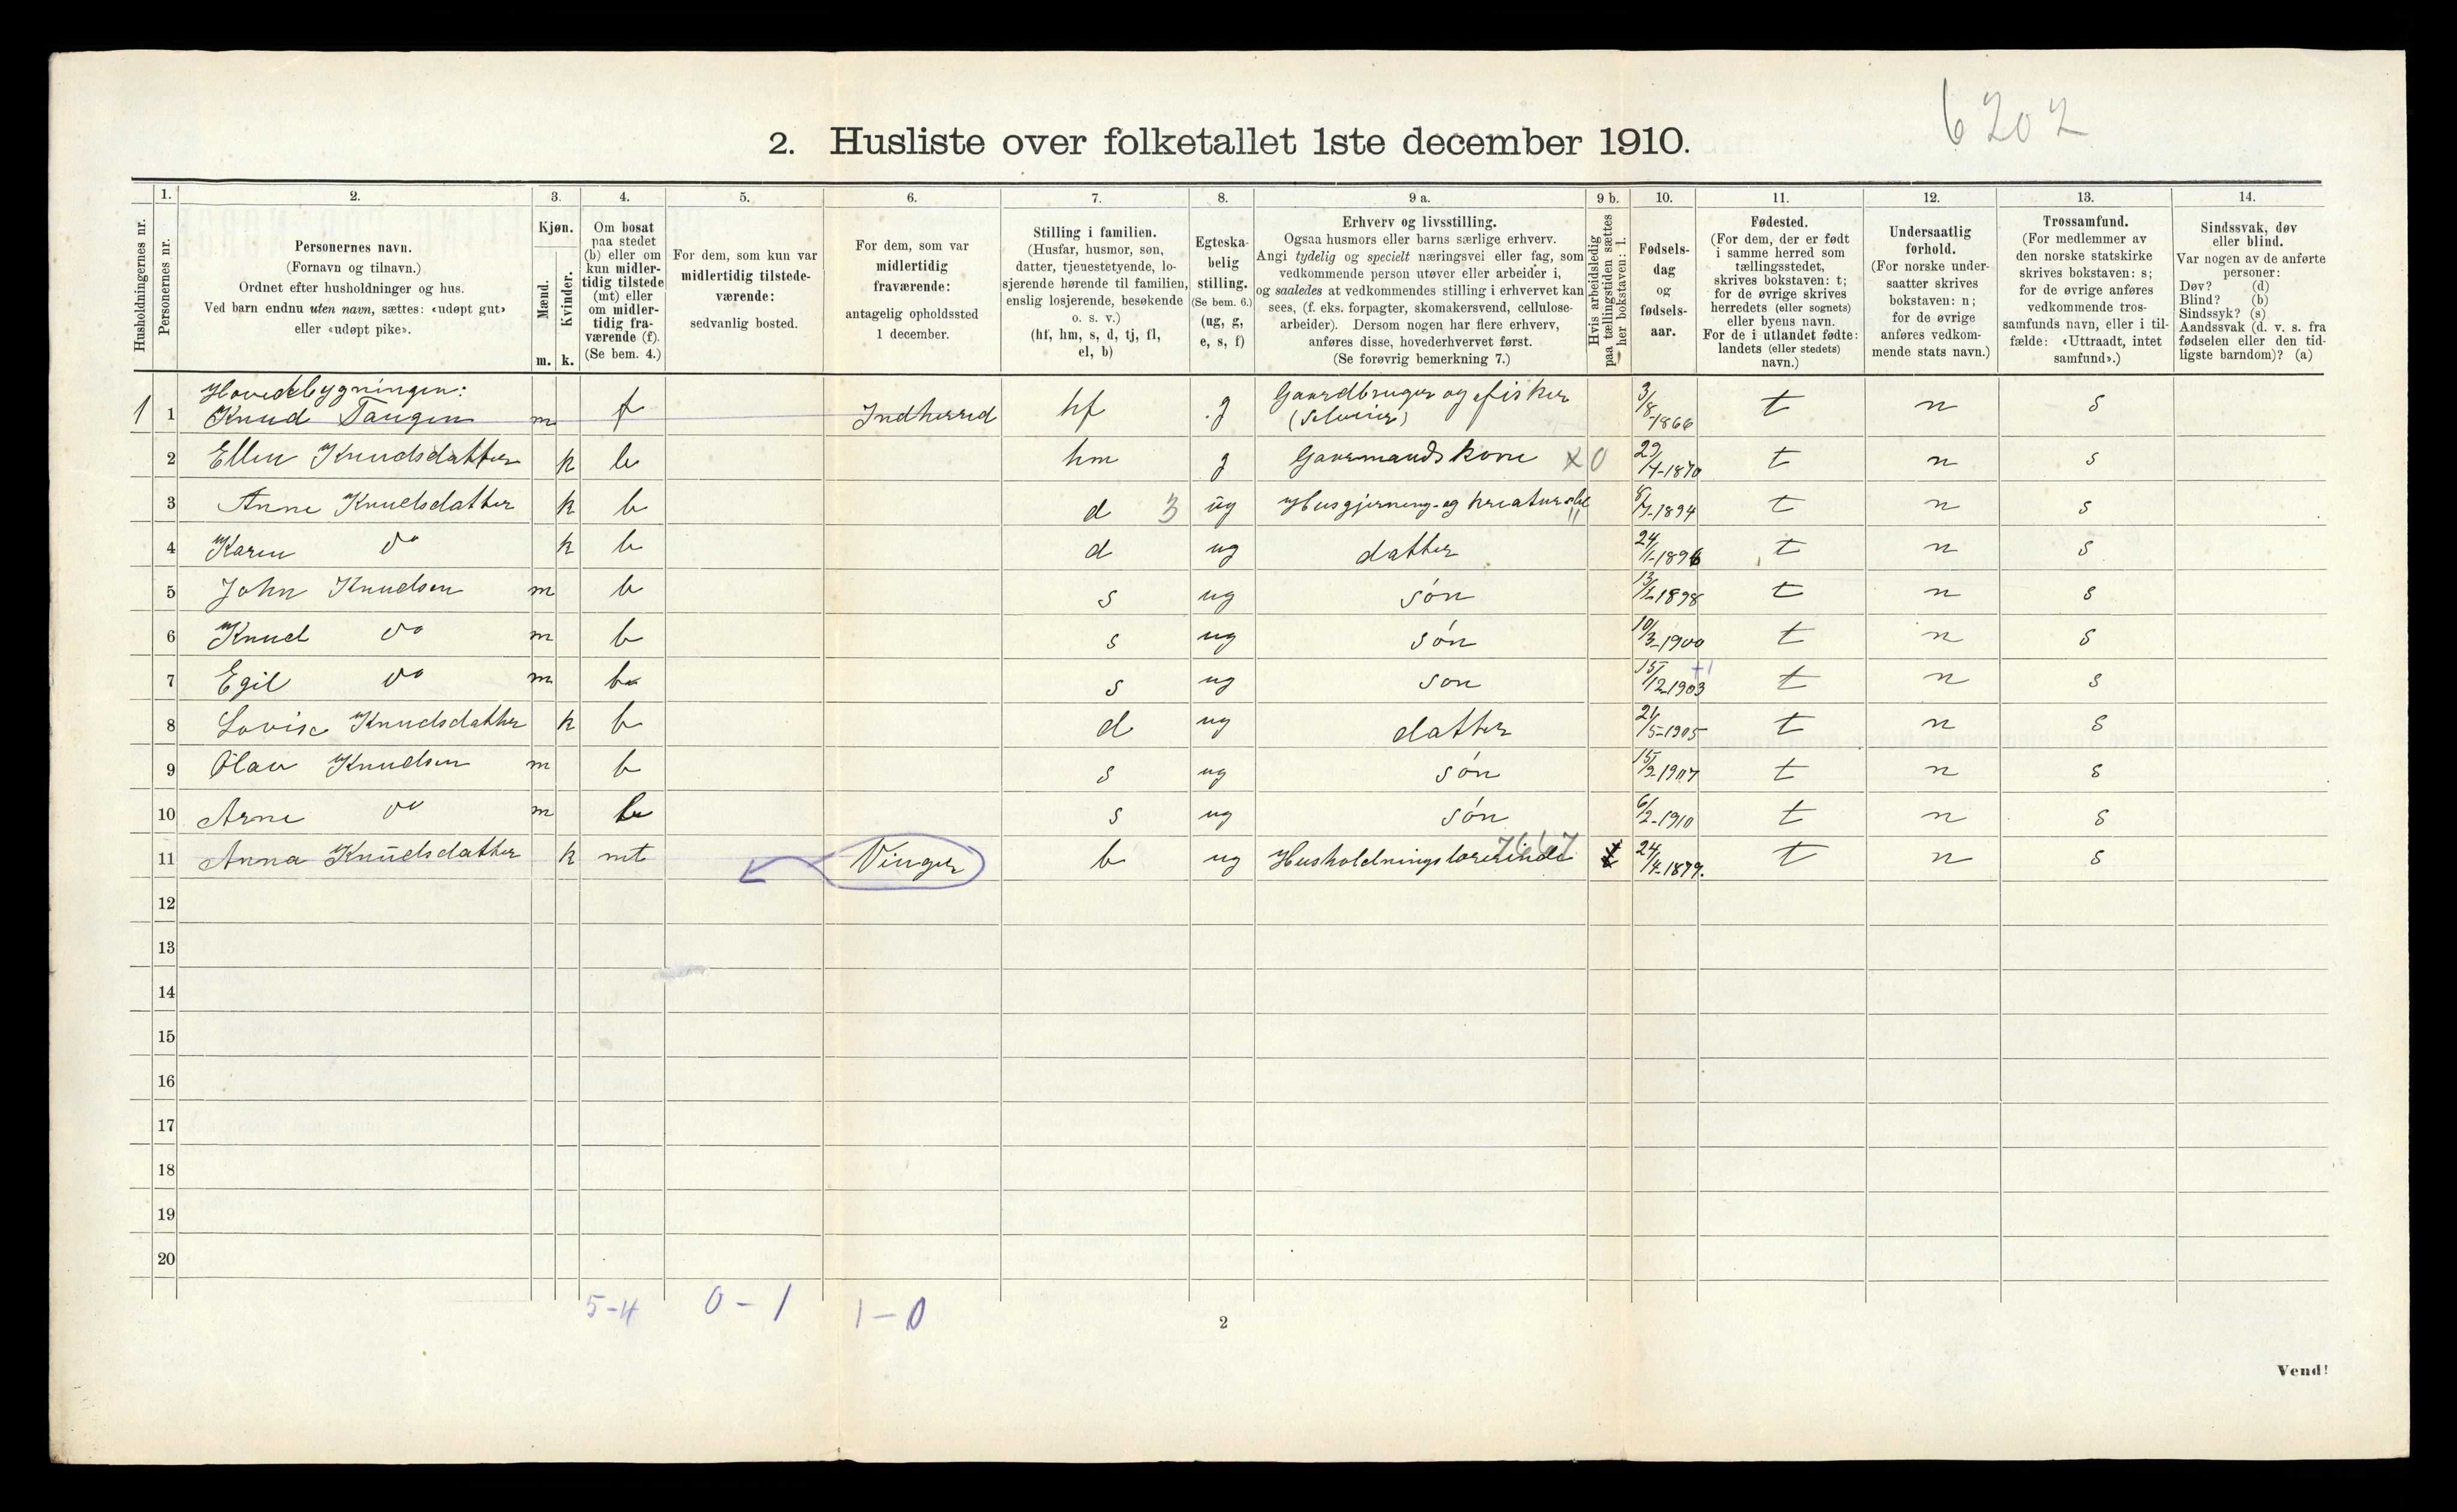 6202
2. Husliste over folketallet 1ste december 1910.
Husholdningernes nr.
1.
Personernes nr.
2.
Personernes navn.
(Fornavn og tilnavn.)
Ordnet efter husholdninger og hus.
Ved barn endnu uten navn, sættes: «udøpt gut»
eller «udøpt pike».
3.
Kjøn.
Mænd.
m.
Kvinder.
k.
4.
Om bosat
paa stedet
(b) eller om
kun midler-
tidig tilstede
(mt) eller
om midler-
tidig fra-
værende (f).
(Se bem. 4.)
5.
For dem, som kun var
midlertidig tilstede-
værende:
sedvanlig bosted.
6.
For dem, som var
midlertidig
fraværende:
antagelig opholdssted
1 december.
7.
Stilling i familien.
(Husfar, husmor, søn,
datter, tjenestetyende, lo-
sjerende hørende til familien,
enslig losjerende, besøkende
o. s. v.)
(hf, hm, s, d, tj, fl,
el, b)
8.
Egteska-
belig
stilling.
(Se bem. 6.)
(ug, g,
e, s, f)
9 a.
Erhverv og livsstilling.
Ogsaa husmors eller barns særlige erhverv.
Angi tydelig og specielt næringsvei eller fag, som
vedkommende person utøver eller arbeider i,
og saaledes at vedkommendes stilling i erhvervet kan
sees, (f. eks. forpagter, skomakersvend, cellulose-
arbeider). Dersom nogen har flere erhverv,
anføres disse, hovederhvervet først.
(Se forøvrig bemerkning 7.)
9 b.
Hvis arbeidsledig
paa tællingstiden sættes
her bokstaven: l.
10.
Fødsels-
dag
og
fødsels-
aar.
11.
Fødested.
(For dem, der er født
i samme herred som
tællingsstedet,
skrives bokstaven: t;
for de øvrige skrives
herredets (eller sognets)
eller byens navn.
For de i utlandet fødte:
landets (eller stedets)
navn.)
12.
Undersaatlig
forhold.
(For norske under-
saatter skrives
bokstaven: n;
for de øvrige
anføres vedkom-
mende stats navn.)
13.
Trossamfund.
(For medlemmer av
den norske statskirke
skrives bokstaven: s;
for de øvrige anføres
vedkommende tros-
samfunds navn, eller i til-
fælde: «Uttraadt, intet
samfund».)
14.
Sindssvak, døv
eller blind.
Var nogen av de anførte
personer:
Døv? (d)
Blind? (b)
Sindssyk? (s)
Aandssvak (d. v. s. fra
fødselen eller den tid-
ligste barndom)? (a)
Hovedbygningen:
1 1 Knud Tangen m f Indherred hf g Gaardbruger og fisker (Selveier) 3/8-1866 t n s
2 Ellen Knudsdatter k b hm g Gaarmands kone x 0 29/4-1870 t n s
3 Anne Knudsdatter k b d 3 ug Husgjerning- og kreaturstel 8/7-1894 t n s
4 Karen do k b d ug datter 24/1-1896 t n s
5 John Knudsen m b s ug søn 13/2-1898 t n s
6 Knud do m b s ug søn 10/3-1900 t n s
7 Egil do m b s ug søn 15/12-1903 +1 t n s
8 Lovise Knudsdatter k b d ug datter 21/5-1905 t n s
9 Olav Knudsen m b s ug søn 15/9-1907 t n s
10 Arne do m b s ug søn 6/2-1910 t n s
11 Anna Knudsdatter k mt Vinger b ug Husholdningslærerinde 7667 24/4-1879. t n s
12
13
14
15
16
17
18
19
20
5-4 0-1 1-0
2
Vend!